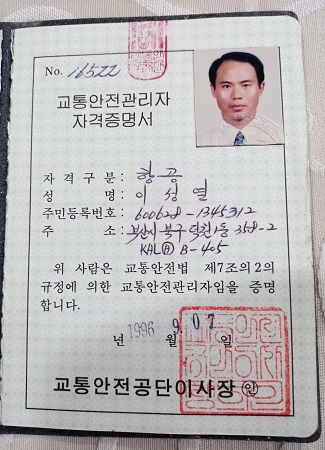 No. 16522
교통안전관리자
자격증명서
자격구분: 항공
성명: 이성열
주민등록번호: 600628-1345312
주소: 부산시 북구 덕천1동 358-2
KAL Ⓐ B-405
위 사람은 교통안전법 제7조의2의
규정에 의한 교통안전관리자임을 증명
합니다.
1996년 9월 07일
교통안전공단이사장 ㊞